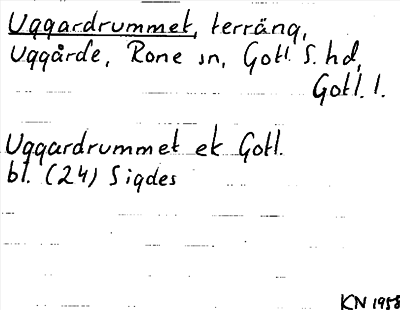 Uggardrummet, terräng,
Uggårde, Rone sn, Gotl. S. hd,
Gotl. l.
Uggardrummet ek Gotl.
bl. (24) Sigdes
KN 1958